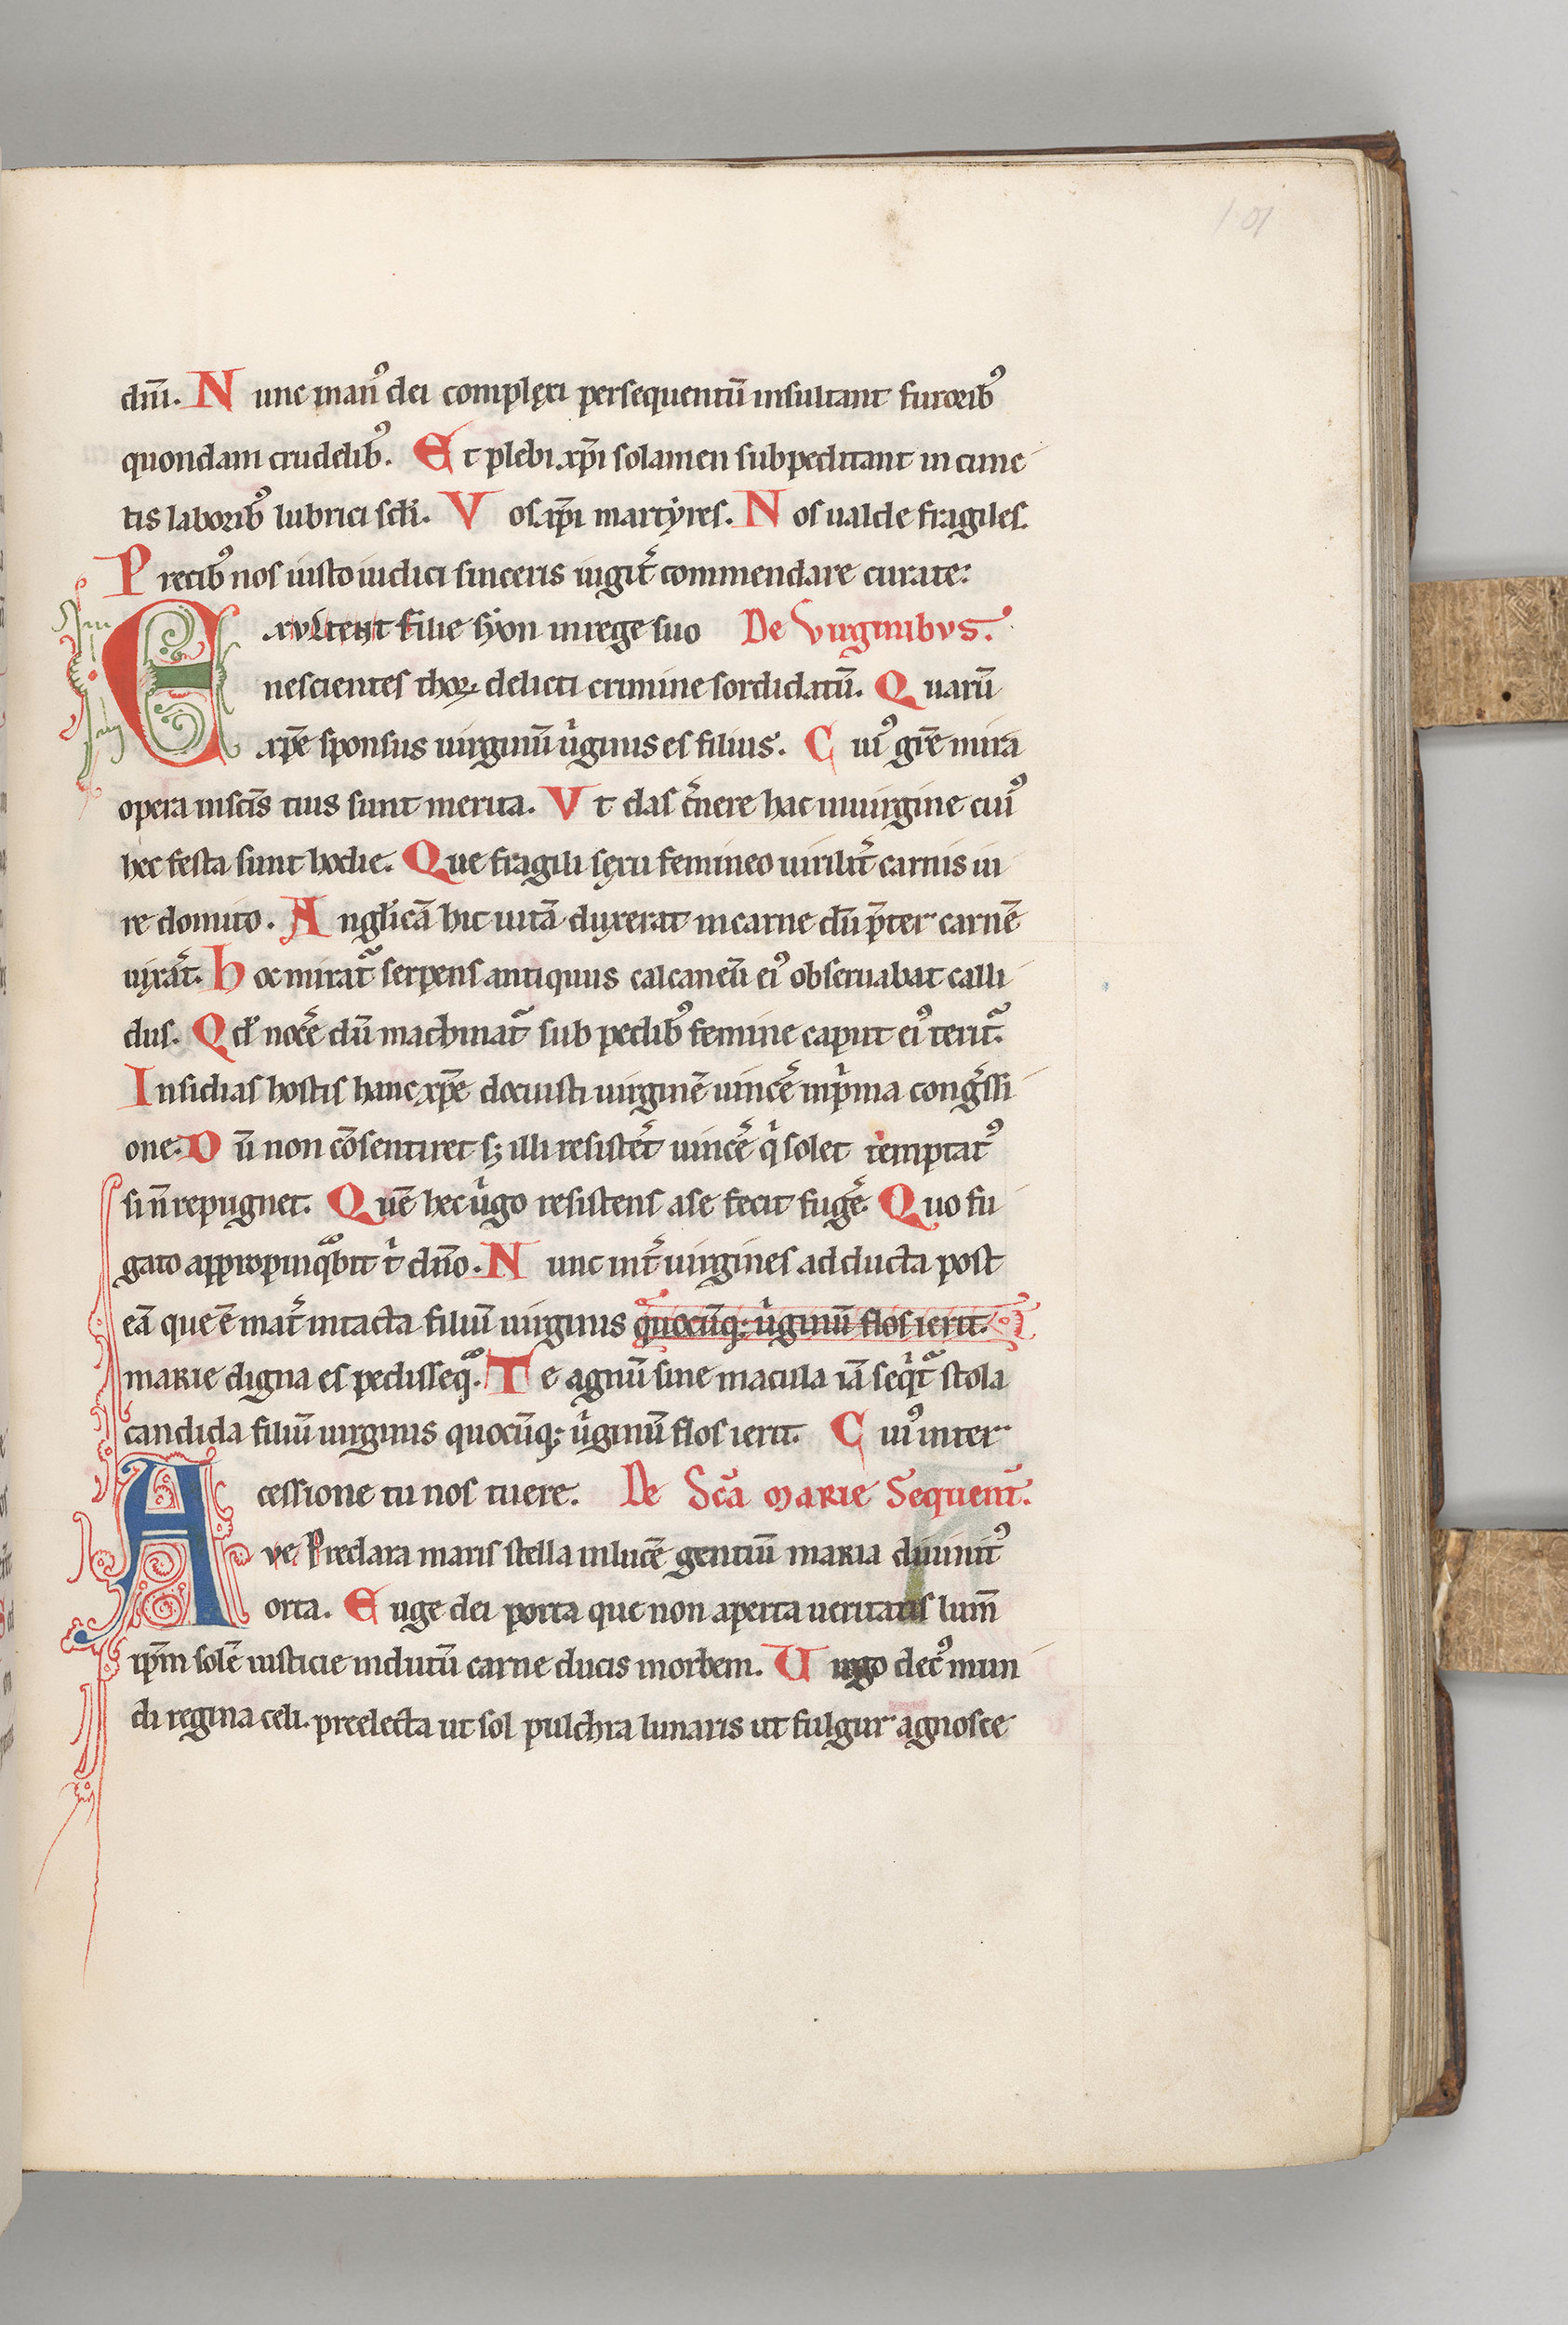 101
dn̄i. Nunc man᷒ dei complexi persequentū insultant furorib᷒
quondam crudelib᷒. Et plebi xp̄i solamen subpeditant in cunc
tis laborib᷒ lubrici scl̄i. Vos xp̄i martẏres. Nos ualde fragiles.
Precib᷒ nos iusto iudici sinceris iugit̄ commendare curate:
Exultent filie sẏon in rege suo De virginibvs.
nescientes thoꝝ delicti crimine sordidatū. Quarū
xp̄e sponsus uirginū ůginis es filius. Cui᷒ gr̄e mira
opera in sc̄is tuis sunt merita. Vt das c̄nere hac in uirgine cui᷒
hec festa sunt hodie. Que fragili sexu femineo uirilit̄ carnis iu
re domito. Anglicā hic uitā duxerat in carne dū p̄ter carnē
uixāt. Hoc mirat̄ serpens antiquus calcaneū ei᷒ obseruabat calli
dus. Qd̄ nocē dū machinat̄ sub pedib᷒ femine caput ei᷒ terit̄.
Insidias hostis hanc xp̄e docuisti uirginē uincē in p̄ma congssi
one. Dū non cōsentiret sꝫ illi resistēt uincē q̇ solet temptat᷒
si n̄ repugnet. Quē hec ůgo resistens a se fecit fugē. Quo fu
gato appropinq̄bit t̄ dn̄o. Nunc int̄ uirgines adducta post
eā que ē mat̄ intacta filiū uirginis quocūqꝫ ůginū flos ierit.
marie digna es pedisseq̄. Te agnū sine macula iā seq̇t̄ stola
candida filiū uirginis quocūqꝫ ůginū flos ierit. Cui᷒ inter
cessione tu nos tuere. De Sc̄a Marie Sequent̄.
Ave Preclara maris stella in lucē gentiū maria diuinit᷒
orta. Euge dei porta que non aperta ueritatis lum̄
ip̄m solē iusticie indutū carne ducis in orbem. Uirgo dec᷒ mun
di regina celi. preelecta ut sol pulchra lunaris ut fulgur agnosce